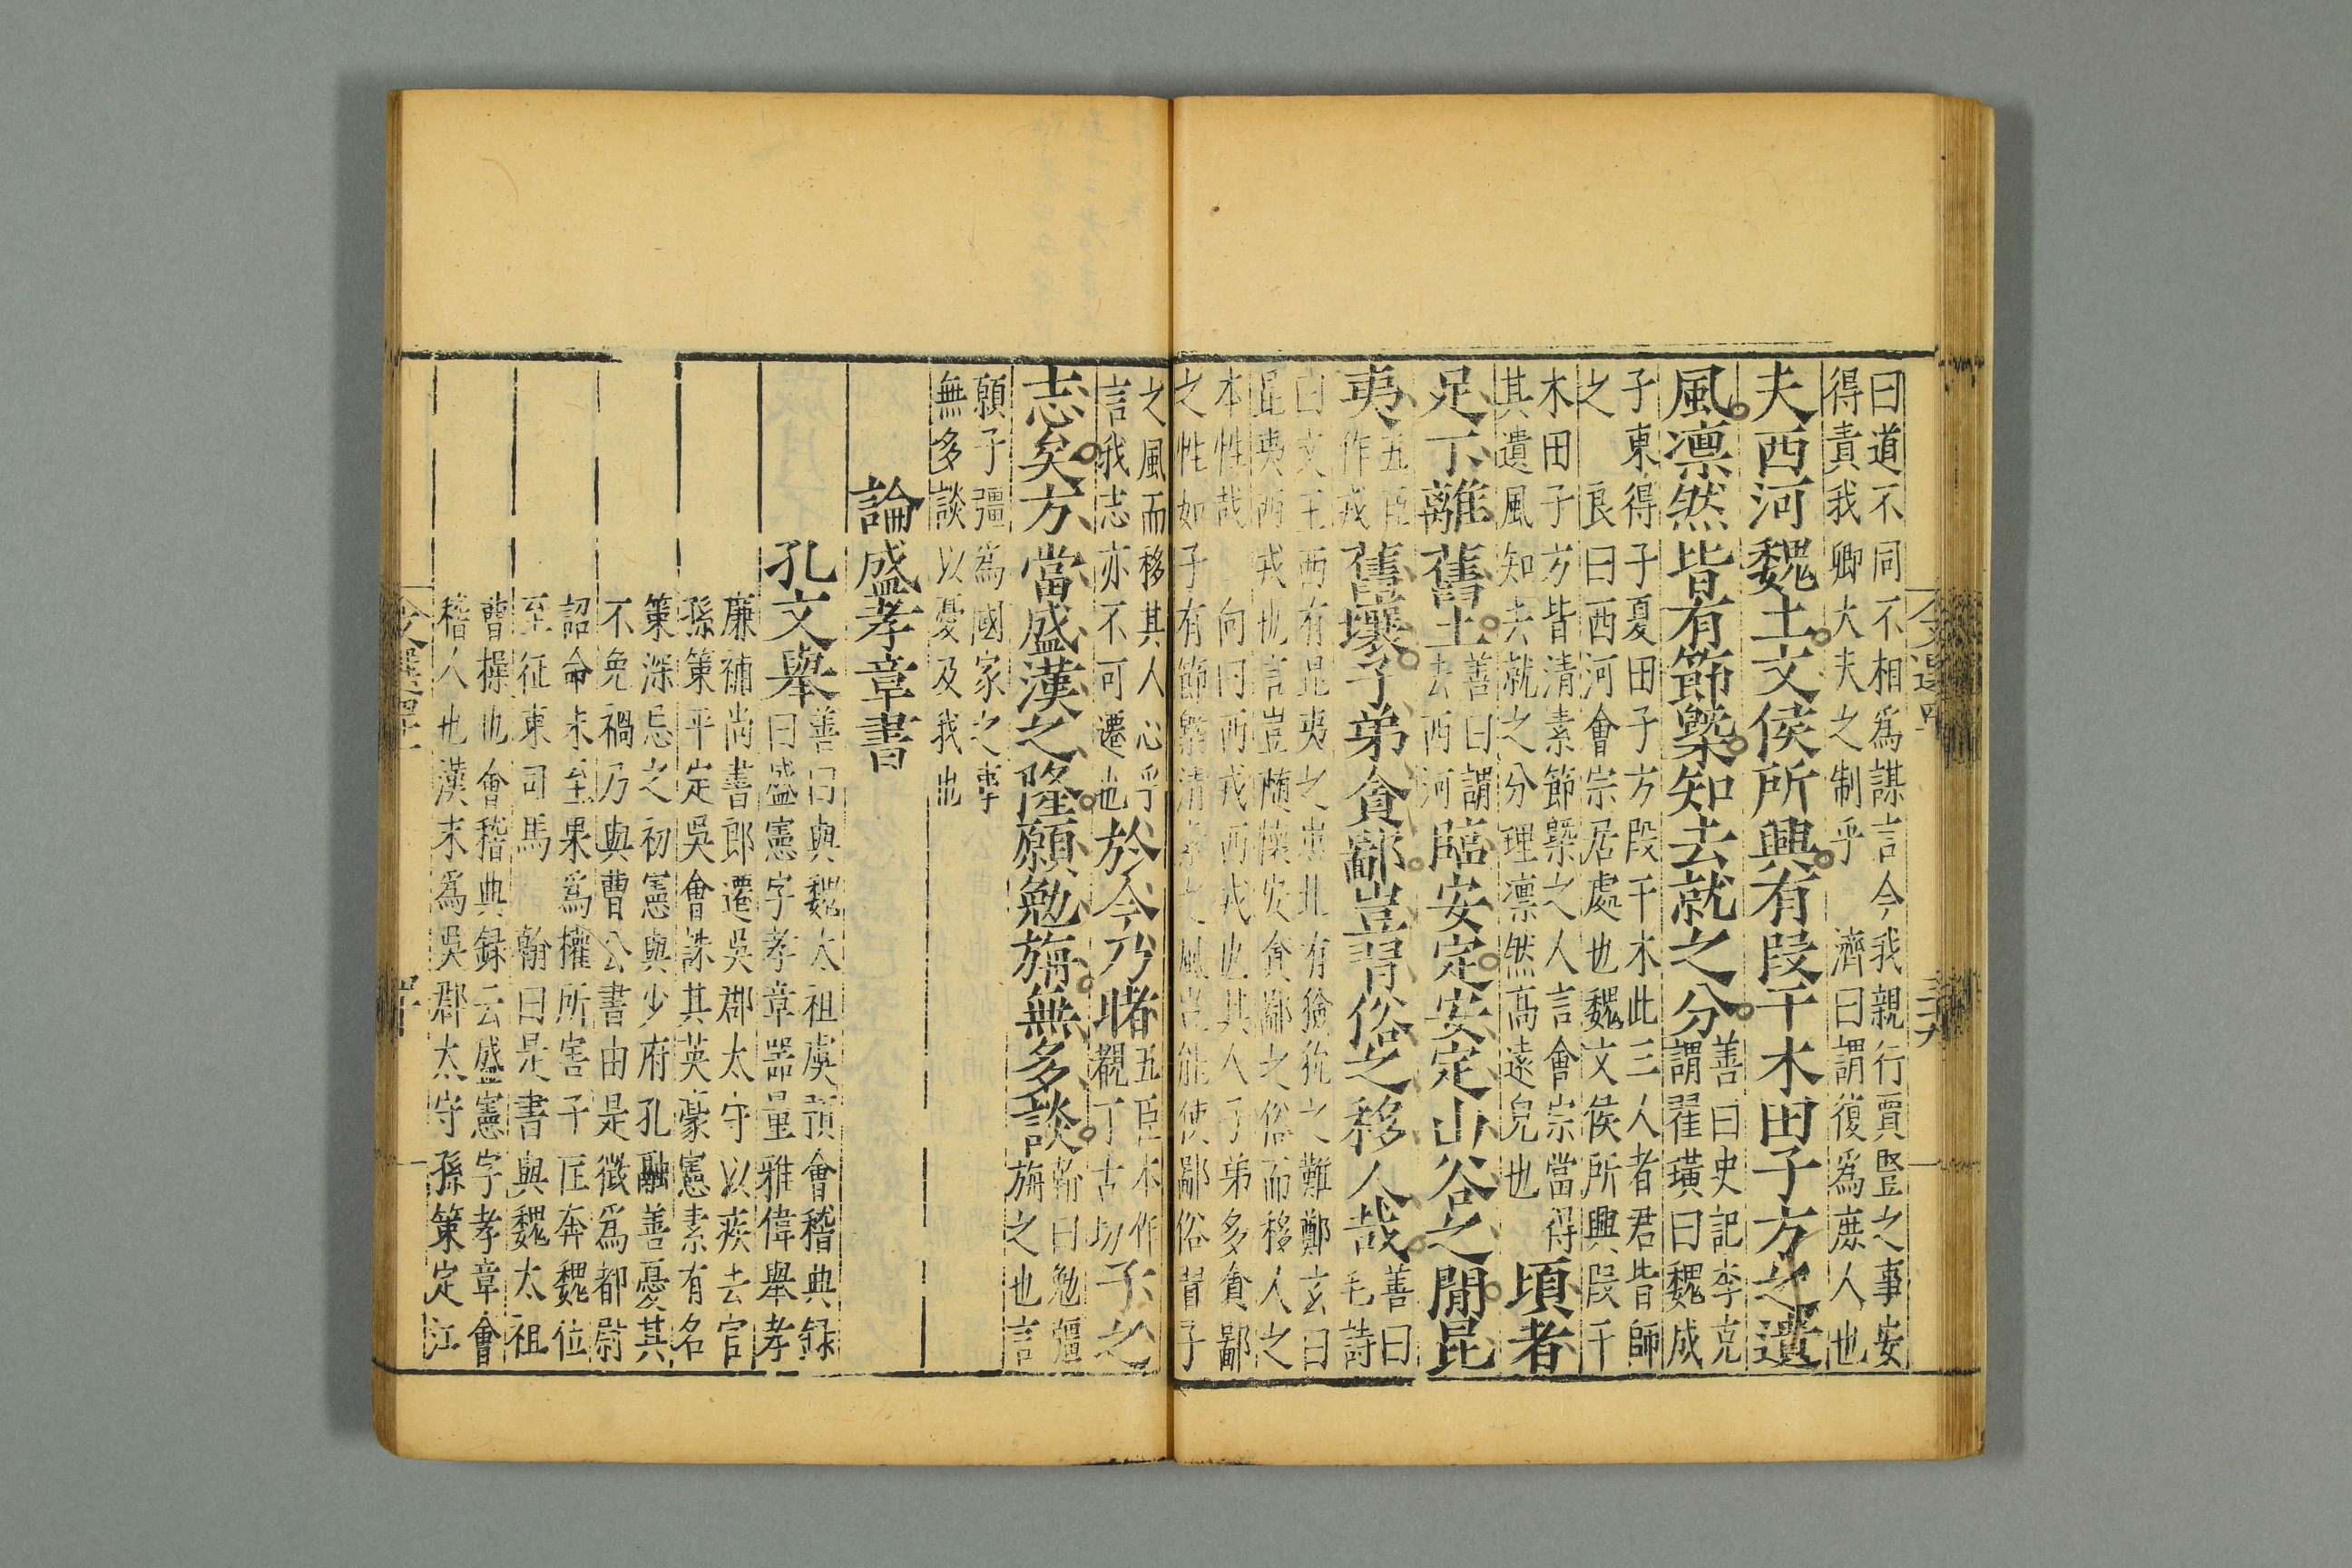 曰道不同不相爲謀言今我親行賈豎之事安
得責我卿大夫之制乎　濟曰謂復爲庶人也
夫西河魏土文侯所興有段干木田子方之遺
風凛然皆有節槩知去就之分
善曰史記李克
謂翟璜曰魏成
子東得子夏田子方段干木此三人者君皆師
之　良曰西河會宗居處也魏文侯所興段干
木田子方皆清素節槩之人言會宗當得
其遺風知去就之分理凛然高遠皃也
頃者
足下離舊土
善曰謂
去西河
臨安定安定山谷之閒昆
夷
五臣
作戎
舊壤子弟貪鄙豈習俗之移人哉
善曰
毛詩
曰文王西有昆夷之患北有獫狁之難鄭玄曰
昆夷西戎也言豈隨懷安貪鄙之俗而移人之
本性哉　向曰西戎西戎也其人子弟多貪鄙
之性如子有節槩清素之風豈能使鄙俗昔子
之風而移其人心乎
言我志亦不可遷也
於今乃睹
五臣本作
覩丁古切
子之
志矣方當盛漢之隆願勉旃無多談
翰曰勉彊
旃之也言
願子彊爲國家之事
無多談以憂及我也
論盛孝章書
孔文舉
善曰與魏太祖虞預會稽典録
曰盛憲字孝章器量雅偉舉孝
廉補尚書郎遷吳郡太守以疾去官
孫策平定吳會誅其英豪憲素有名
策深忌之初憲與少府孔融善憂其
不免禍乃與曹公書由是徵爲都尉
詔命未至果爲權所害子匡奔魏位
至征東司馬　翰曰是書與魏太祖
曹操也會稽典録云盛憲字孝章會
稽人也漢末爲吳郡太守孫策定江